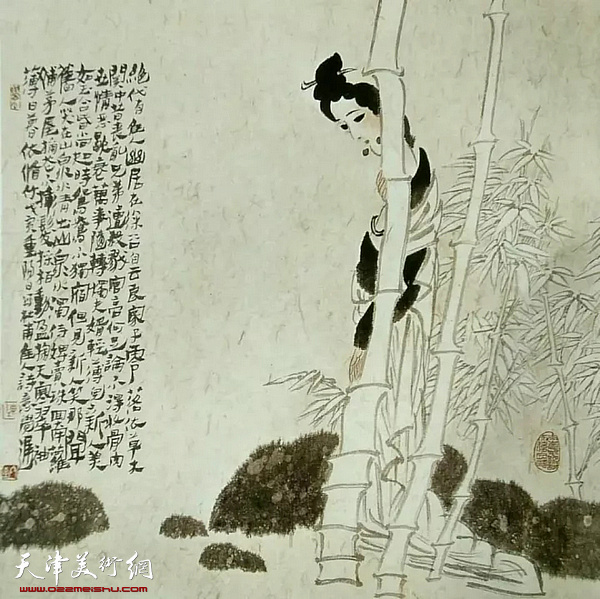 絶代有佳人幽居在深谷自云良家子零落依草木
関中昔喪乱兄弟遭殺戮官高何足論不得收骨肉
世情惡歇衰萬事随轉燭夫婿輕薄兒新人美
如玉合昏尚知時鴛鴦不獨宿但見新人笑那聞
舊人哭在山泉水清出山泉水濁侍婢賣珠回牽蘿
補茅屋摘花不插髮採柏動盈掬天寒翠袖
薄日暮依脩竹 亥重陽日 杜甫佳人詩意
天津美術網
www.022meishu.com